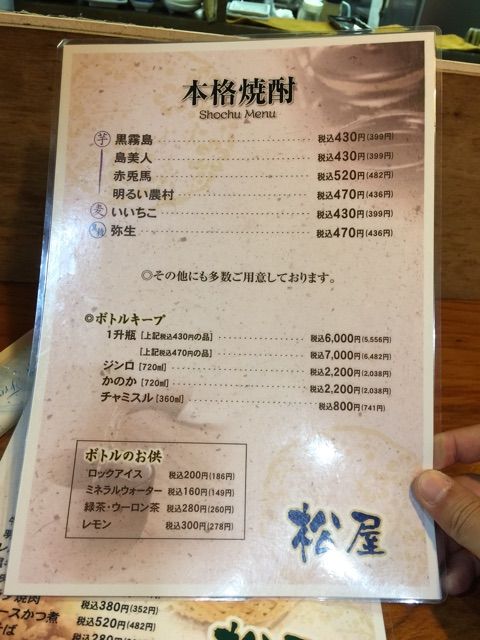 本格焼酎
Shochu Menu
芋 黒霧島 税込430円(399円)
島美人 税込430円(399円)
赤兎馬 税込520円(482円)
明るい農村 税込470円(436円)
麦 いいちこ 税込430円(399円)
黒糖 弥生 税込470円(436円)
◎その他にも多数ご用意しております。
◎ボトルキープ
1升瓶 [上記税込430円の品] 税込6,000円(5,556円)
[上記税込470円の品] 税込7,000円(6,482円)
ジンロ [720㎖] 税込2,200円(2,038円)
かのか [720㎖] 税込2,200円(2,038円)
チャミスル [360㎖] 税込800円(741円)
ボトルのお供
ロックアイス 税込200円(186円)
ミネラルウォーター 税込160円(149円)
緑茶・ウーロン茶 税込280円(260円)
レモン 税込300円(278円)
松屋
焼肉 税込380円(352円)
ースかつ煮 税込520円(482円)
そば 税込280円
松屋